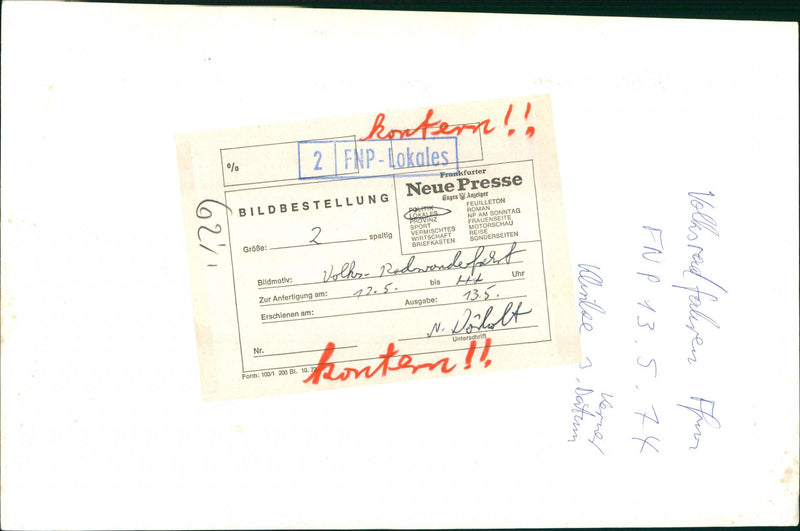 kontern!!
%
2 FNP-Lokales
Frankfurter
Neue Presse
BILDBESTELLUNG
POLITIK
LOKALES
PROVINZ
SPORT
VERMISCHTES
WIRTSCHAFT
BRIEFKASTEN
FEUILLETON
ROMAN
NP AM SONNTAG
FRAUENSEITE
MOTORSCHAU
REISE
SONDERSEITEN
62%
Größe: 2 spaltig
Bildmotiv: Volks-Radwanderfahrt
Zur Anfertigung am: 12.5. bis Uhr
Erschienen am: Ausgabe: 13.5.
N.
Unterschrift
Nr.
Form: 100/1 200 Bl. 10.
kontern!!
Volksradfahren
FNP 13.5.74
s. Datum